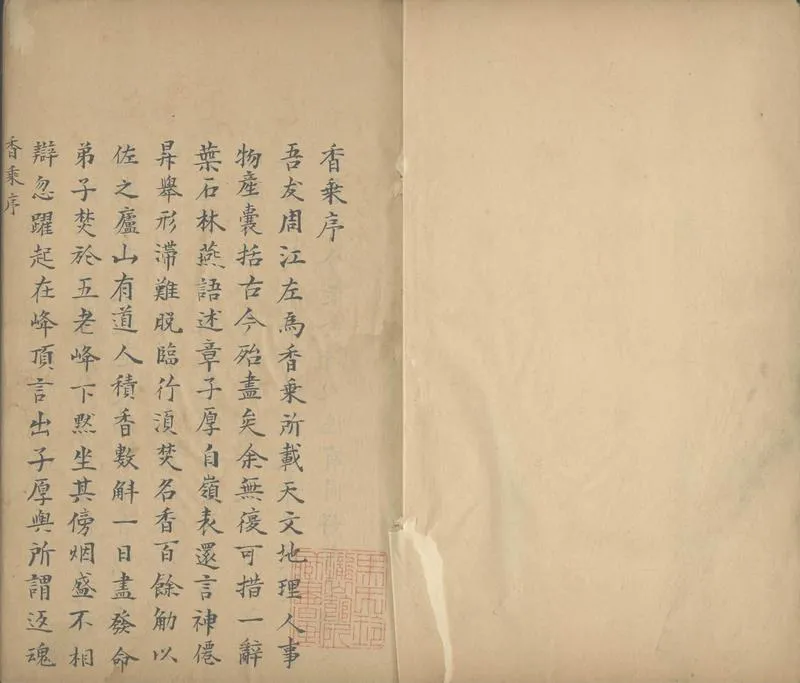 香乗序
吾友周江左爲香乗所載天文地理人事
物産囊括古今殆盡矣余無復可措一辭
葉石林燕語述章子厚自嶺表還言神僊
昇舉形滯難脫臨行須焚名香百餘觔以
佐之廬山有道人積香數斛一日盡發命
弟子焚於五老峰下黙坐其傍烟盛不相
辯忽躍起在峰頂言出子厚與所謂返魂
香乗序